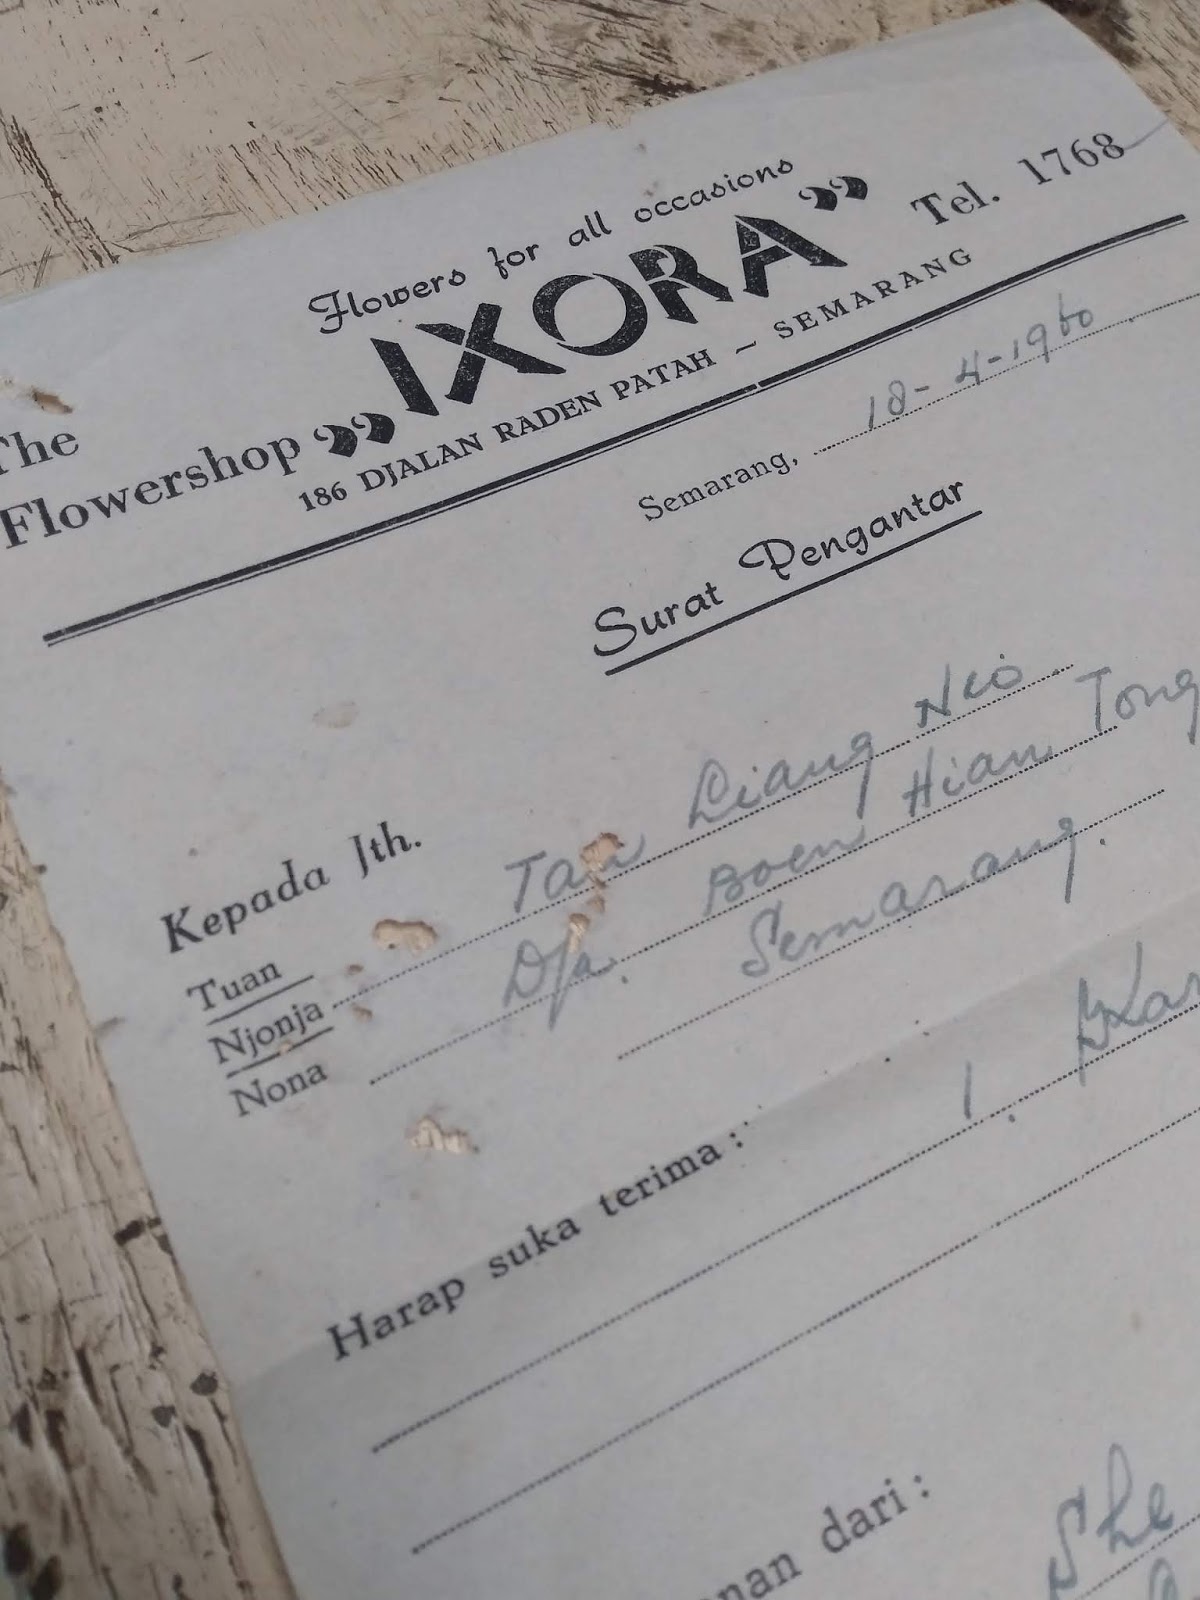 Flowers for all occasions
The Flowershop „IXORA” Tel. 1768
186 DJALAN RADEN PATAH — SEMARANG
Semarang, 18-4-1960
Surat Pengantar
Kepada Jth.
Tuan
Njonja
Nona
Tan Liang Nio
Dja. Boen Hian Tong
Semarang.
Harap suka terima : 1.
dari :
She